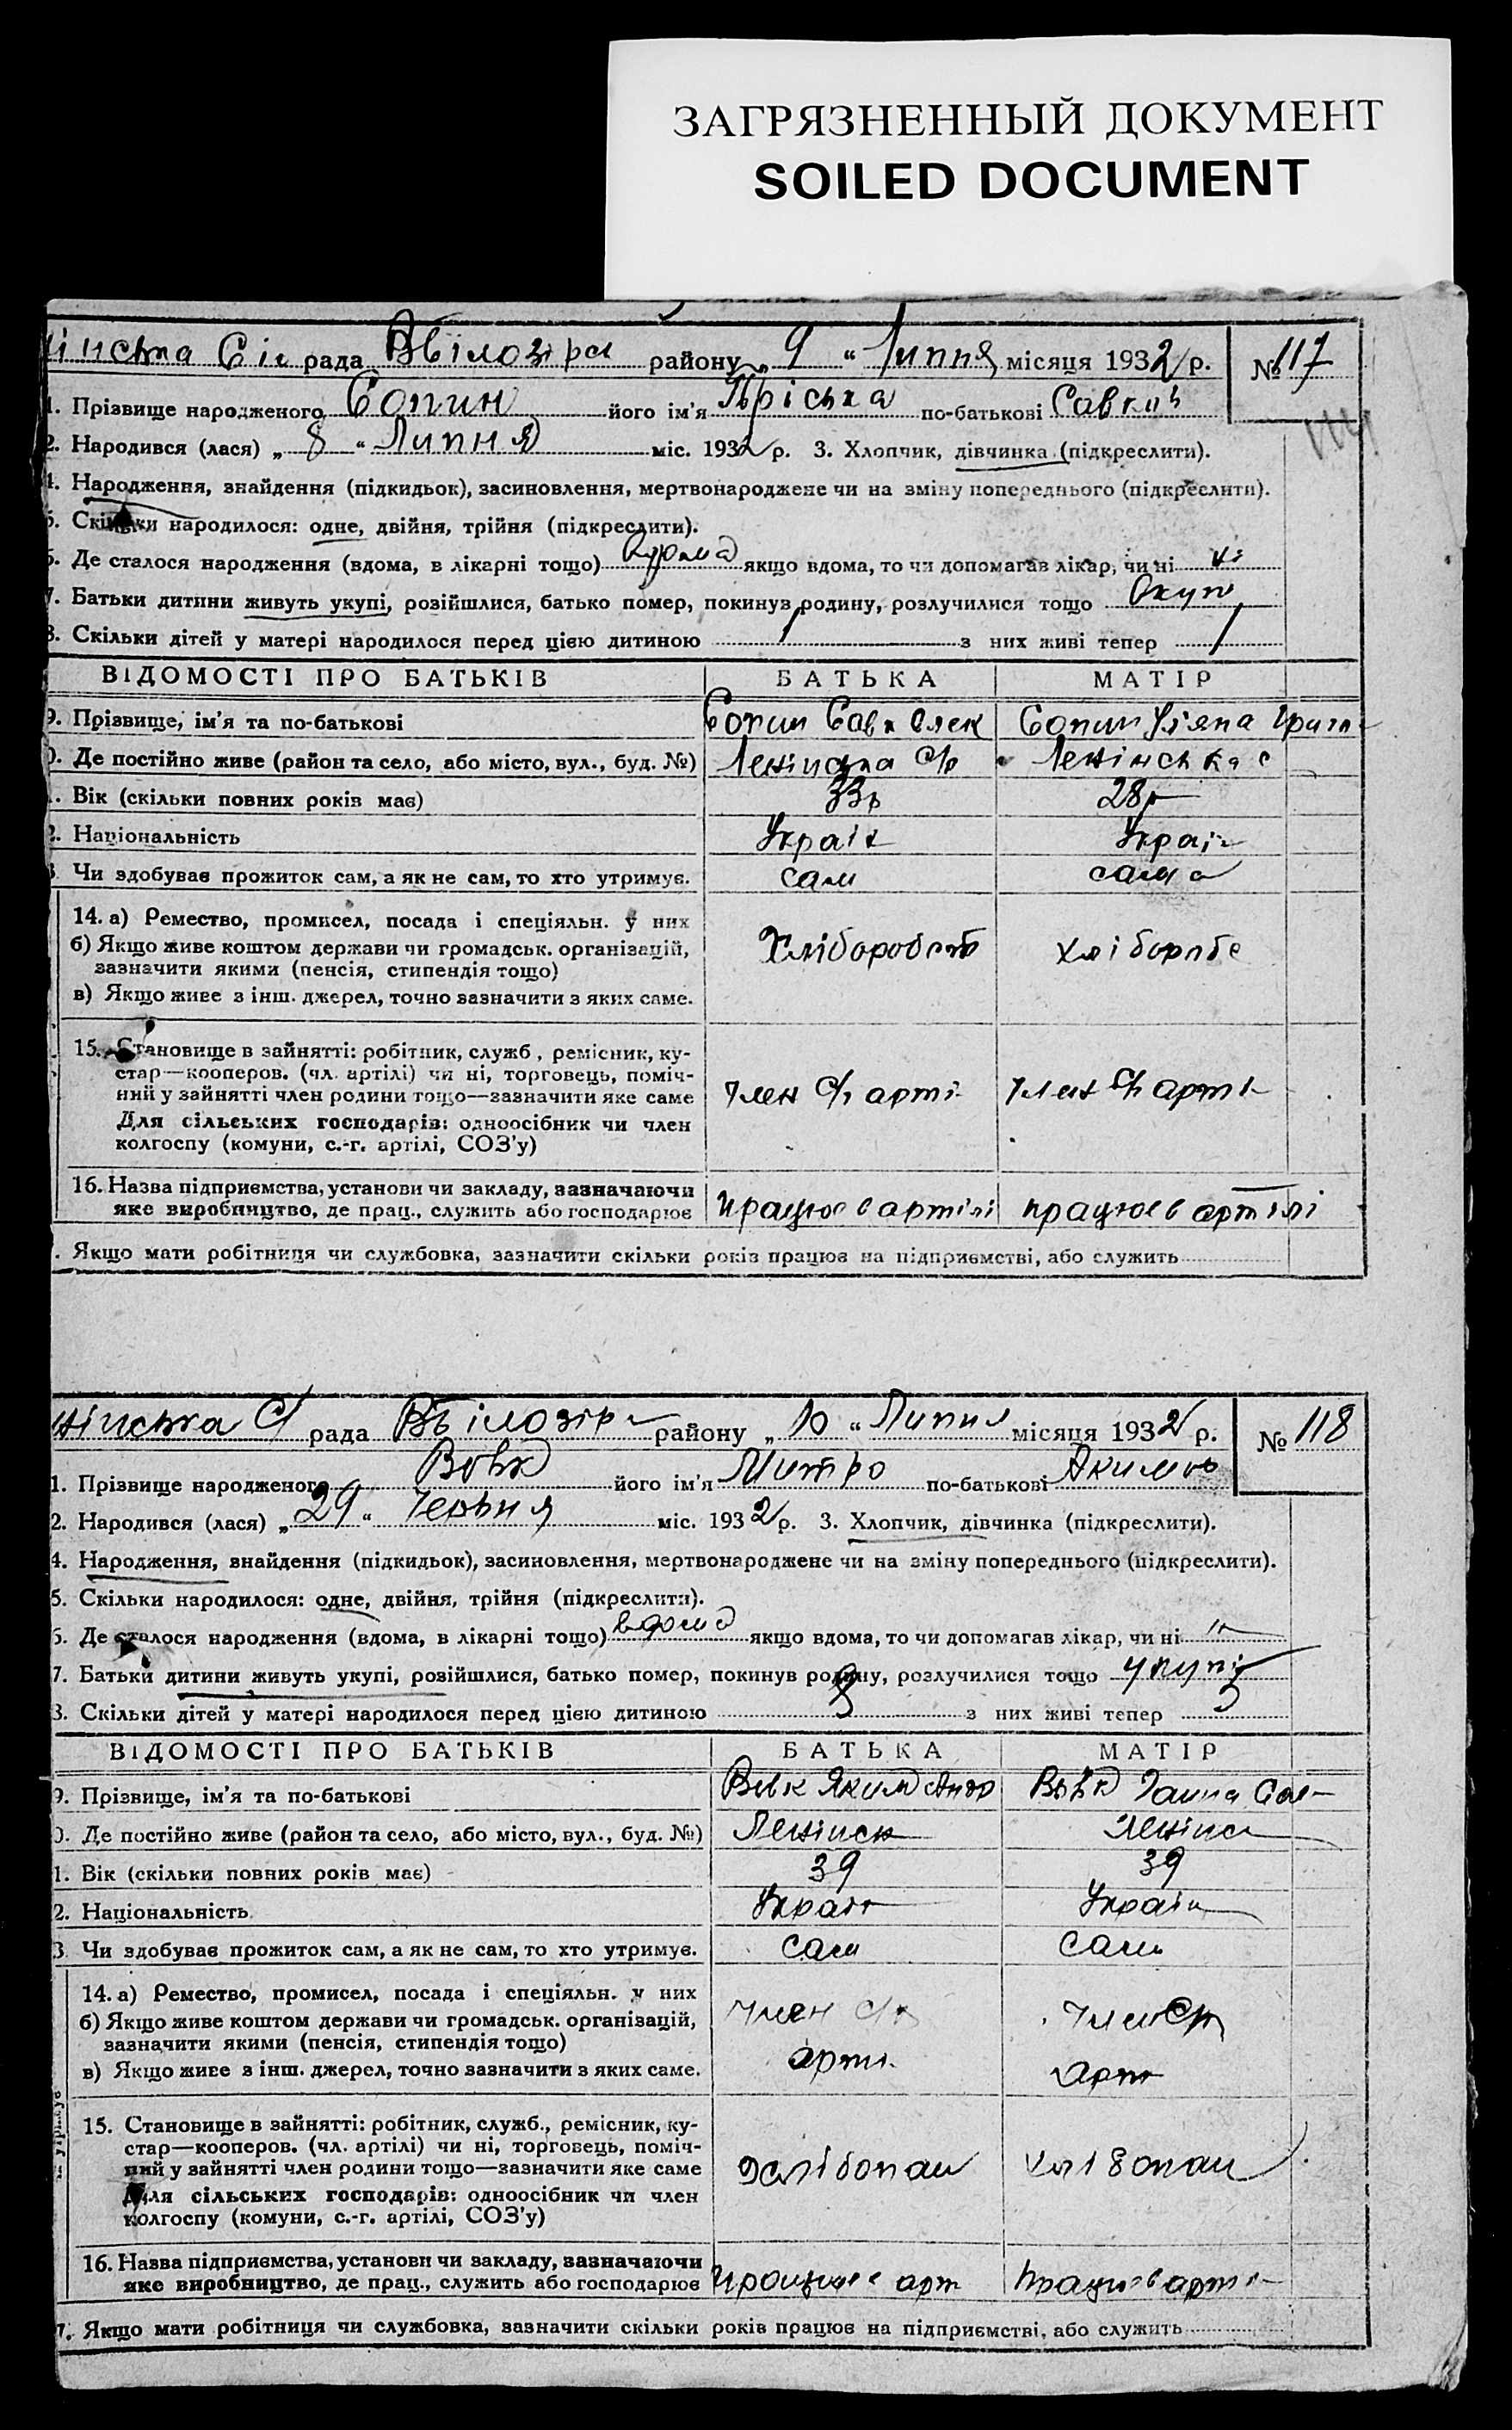 ЗАГРЯЗНЕННЫЙ ДОКУМЕНТ
SOILED DOCUMENT
інська Сіл рада Вбілозірсь району „ 9 “ Липня місяця 1932 р. № 117
1. Прізвище народженого Сопин його ім'я Пріська по-батькові Савків
2. Народився (лася) „ 8 “ Липня міс. 1932 р. 3. Хлопчик, дівчинка (підкреслити).
4. Народження, знайдення (підкидьок), засиновлення, мертвонароджене чи на зміну попереднього (підкреслити).
5. Скільки народилося: одне, двійня, трійня (підкреслити).
6. Де сталося народження (вдома, в лікарні тощо) вдома якщо вдома, то чи допомагав лікар, чи ні ні
7. Батьки дитини живуть укупі, розійшлися, батько помер, покинув родину, розлучилися тощо
8. Скільки дітей у матері народилося перед цією дитиною 1 з них живі тепер 1
ВІДОМОСТІ ПРО БАТЬКІВ БАТЬКА МАТІР
9. Прізвище, ім'я та по-батькові Сопин Сава Олек Сопин Уляна Григо
0. Де постійно живе (район та село, або місто, вул., буд. №) Ленінська С/р Ленінська с
. Вік (скільки повних років має) 33р 28р
2. Національність Україн Україн
3 Чи здобуває прожиток сам, а як не сам, то хто утримує. сам сама
14. а) Ремество, промисел, посада і спеціяльн. у них
б) Якщо живе коштом держави чи громадськ. організацій,
зазначити якими (пенсія, стипендія тощо) Хліборобств хліборобс
в) Якщо живе з інш. джерел, точно зазначити з яких саме.
15. Становище в зайнятті: робітник, служб, ремісник, ку-
стар—кооперов. (чл. артілі) чи ні, торговець, поміч-
ний у зайнятті член родини тощо—зазначити яке саме член С/г арті член С/г арті
Для сільських господарів: одноосібник чи член
колгоспу (комуни, с.-г. артілі, СОЗ'у)
16. Назва підприємства, установи чи закладу, зазначаючи
яке виробництво, де прац., служить або господарює працює в артілі працює в артілі
. Якщо мати робітниця чи службовка, зазначити скільки років працює на підприємстві, або служить
нінська С/ рада Вбілозір району „ 10 “ Липня місяця 1932 р. № 118
1. Прізвище народженого Вовк його ім'я Митро по-батькові Акимов
2. Народився (лася) „ 29 “ Червня міс. 1932 р. 3. Хлопчик, дівчинка (підкреслити).
4. Народження, знайдення (підкидьок), засиновлення, мертвонароджене чи на зміну попереднього (підкреслити).
5. Скільки народилося: одне, двійня, трійня (підкреслити).
6. Де сталося народження (вдома, в лікарні тощо) вдома якщо вдома, то чи допомагав лікар, чи ні
7. Батьки дитини живуть укупі, розійшлися, батько помер, покинув родину, розлучилися тощо укупі
8. Скільки дітей у матері народилося перед цією дитиною з них живі тепер
ВІДОМОСТІ ПРО БАТЬКІВ БАТЬКА МАТІР
9. Прізвище, ім'я та по-батькові Вовк Яким Андр Вовк Ганна
0. Де постійно живе (район та село, або місто, вул., буд. №) Ленінськ Ленінс
1. Вік (скільки повних років має) 39 39
2. Національність Україн Україн
3 Чи здобуває прожиток сам, а як не сам, то хто утримує. сам сам
14. а) Ремество, промисел, посада і спеціяльн. у них
б) Якщо живе коштом держави чи громадськ. організацій, член С/г член С/г
зазначити якими (пенсія, стипендія тощо) арті арт
в) Якщо живе з інш. джерел, точно зазначити з яких саме.
15. Становище в зайнятті: робітник, служб., ремісник, ку-
стар—кооперов. (чл. артілі) чи ні, торговець, поміч-
ний у зайнятті член родини тощо—зазначити яке саме хлібопаш хлібопаш
Для сільських господарів: одноосібник чи член
колгоспу (комуни, с.-г. артілі, СОЗ'у)
16. Назва підприємства, установи чи закладу, зазначаючи
яке виробництво, де прац., служить або господарює працює арт працює в арті
7. Якщо мати робітниця чи службовка, зазначити скільки років працює на підприємстві, або служить